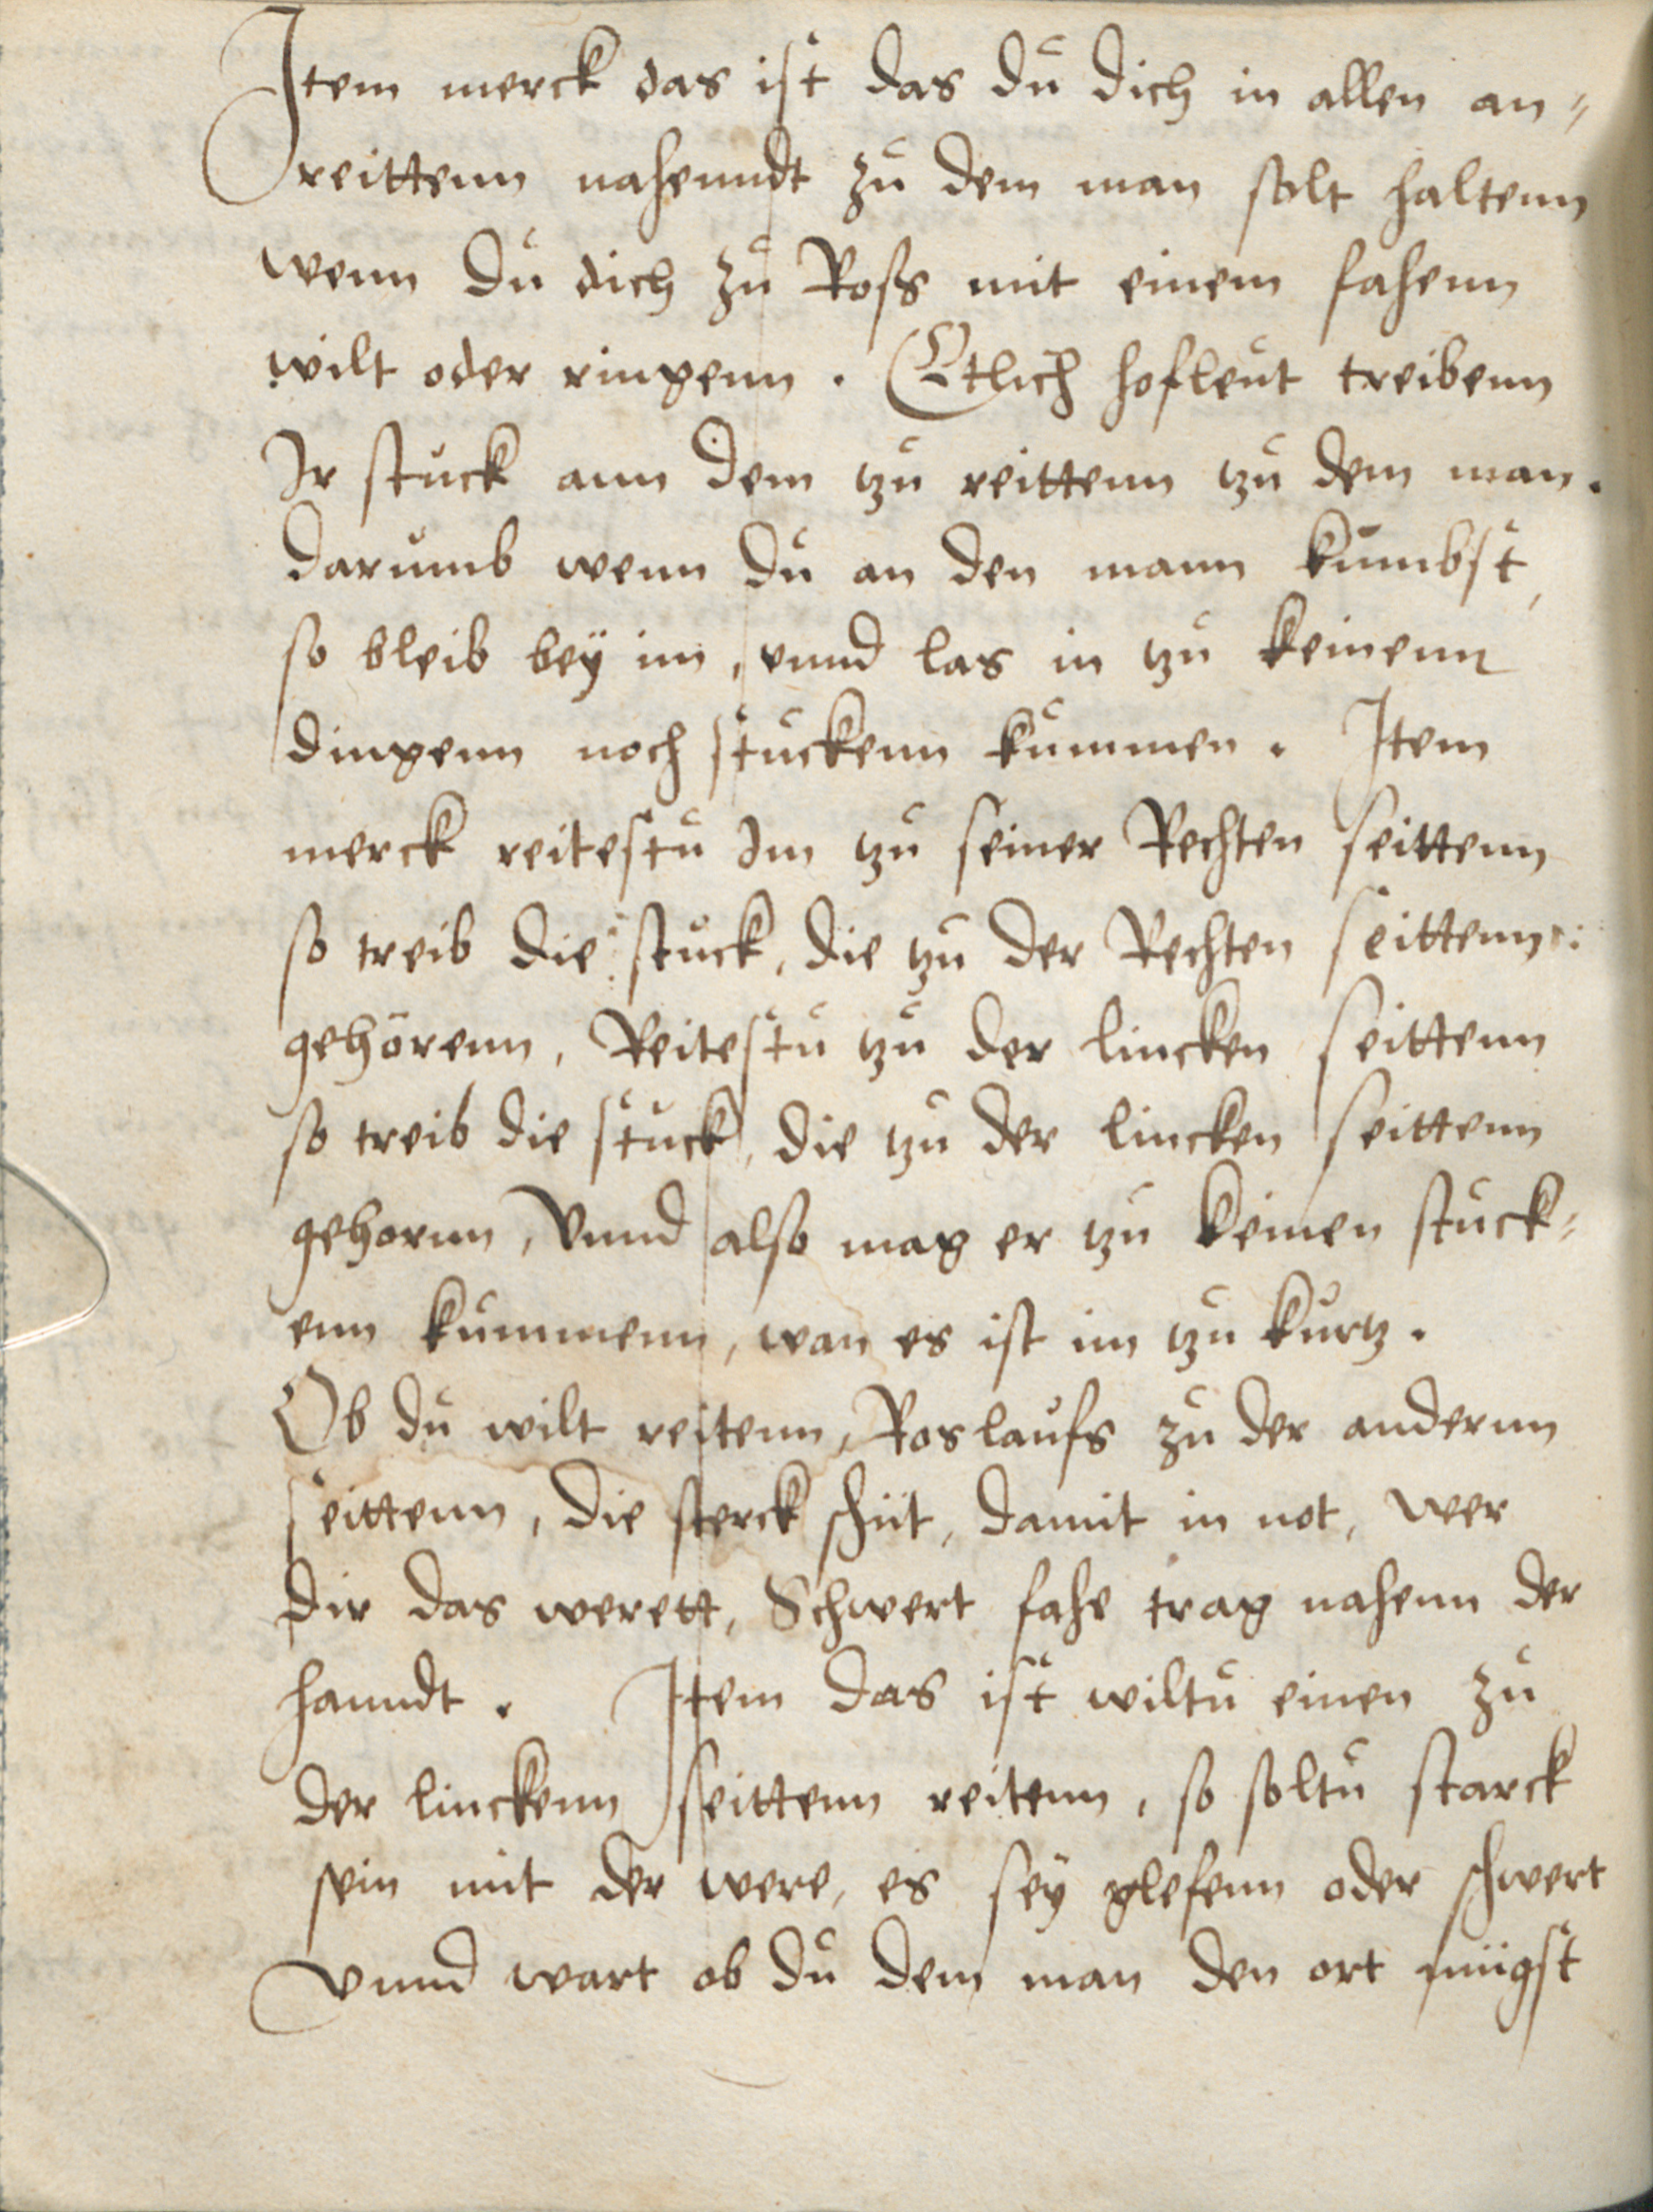 Item merck das ist das du dich in allen an-
reittenn nahenndt zu dem man solt haltenn
wenn du dich zu Ross mit einem fahenn
wilt oder ringenn. Etlich hofleut treibenn
Ir stuck ann dem tzu reittenn tzu dem man.
darumb wenn du an den mann kumbst,
so bleib bey im, vnnd las in tzu keinenn
dingenn noch stuckenn kummen. Item
merck reitestu Im tzu seiner Rechten seittenn
so treib die stuck, die tzu der Rechten seittenn
gehörenn, Reitestu tzu der lincken seittenn
so treib die stuck, die tzu der lincken seittenn
gehornn, Vnnd also mag er tzu keinen stuck-
enn kummenn, wan es ist im tzu kurtz.
Ob du wilt reitenn, Roslaufs zu der andernn
seittenn, die sterck schüt, damit in not, wer
dir das werett, Schwert fahe trag nahenn der
hanndt. Item das ist wiltu einen zu
der linckenn seittenn reitenn, so soltu starck
sein mit der were, es sey glefenn oder schwert
vnnd wart ob du dem man den ort mügst